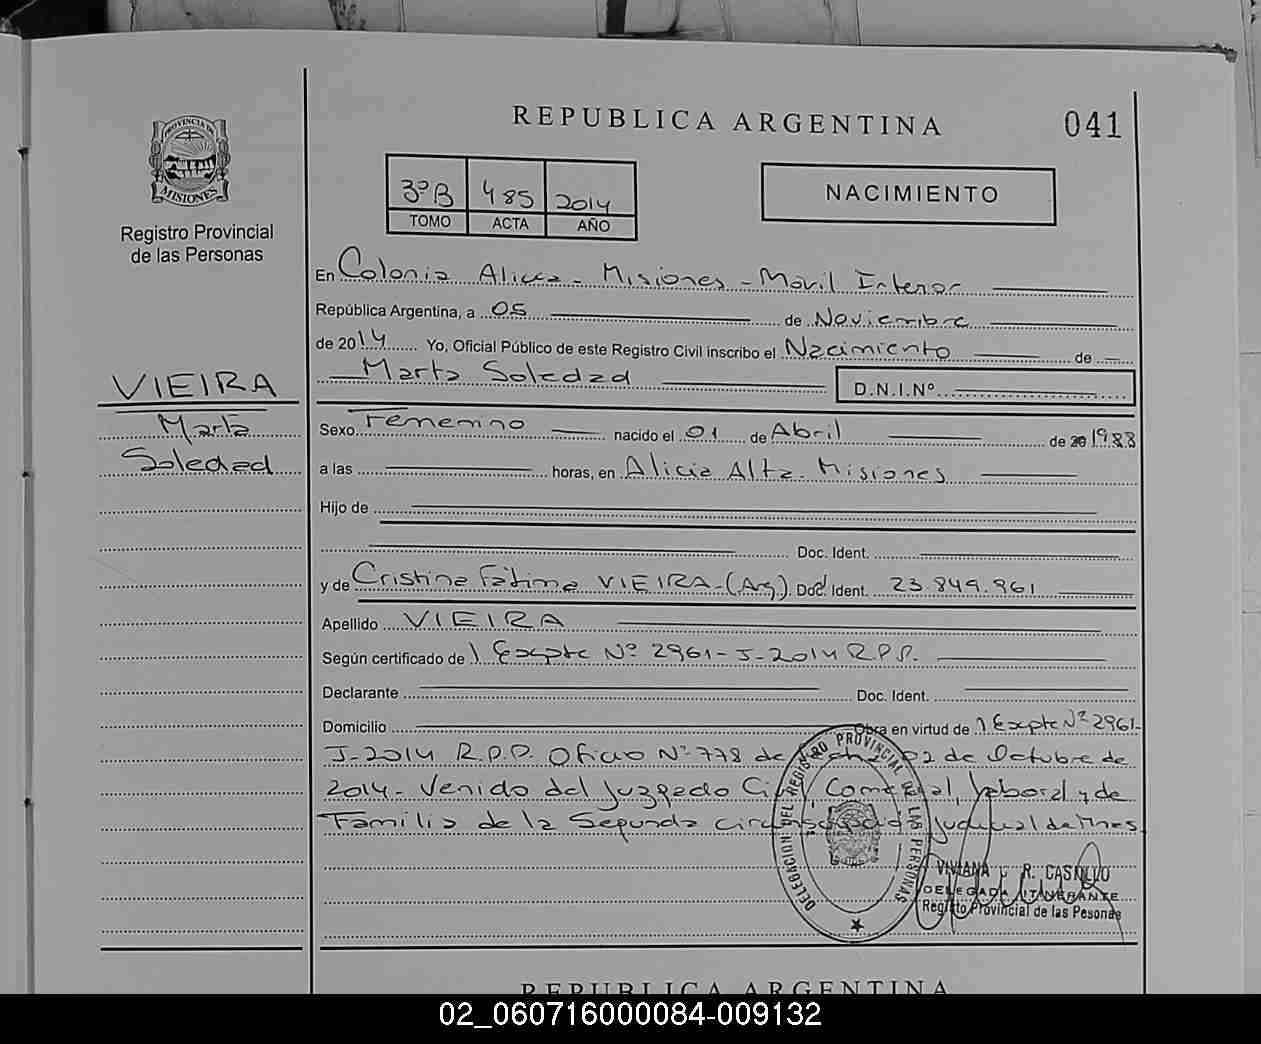 REPUBLICA ARGENTINA
041
PROVINCIA DE
MISIONES
Registro Provincial
de las Personas
3º B 485 2014
TOMO ACTA AÑO
NACIMIENTO
En Colonia Alicia - Misiones - Móvil Interior
República Argentina, a 05 de Noviembre
de 2014 Yo, Oficial Público de este Registro Civil inscribo el Nacimiento de
Marta Soledad D.N.I.Nº
VIEIRA
Marta
Soledad
Sexo Femenino nacido el 01 de Abril de 20 1988
a las horas, en Alicia Alta - Misiones
Hijo de
Doc. Ident.
y de Cristina Fátima VIEIRA - (Arg.) Doc. Ident. 23.849.961
Apellido VIEIRA
Según certificado de Expte Nº 2961 - J - 2014 R.P.P.
Declarante Doc. Ident.
Domicilio Obra en virtud de Expte Nº 2961 -
J - 2014 R.P.P. Oficio Nº 778 de fecha 02 de Octubre de
2014 - Venido del Juzgado Civil, Comercial, Laboral y de
Familia de la Segunda Circunscripción Judicial de Mnes.
DELEGACION DEL REGISTRO PROVINCIAL DE LAS PERSONAS
VIVIANA R. CASTILLO
DELEGADA ITINERANTE
Registro Provincial de las Pesonas
REPUBLICA ARGENTINA
02_060716000084-009132